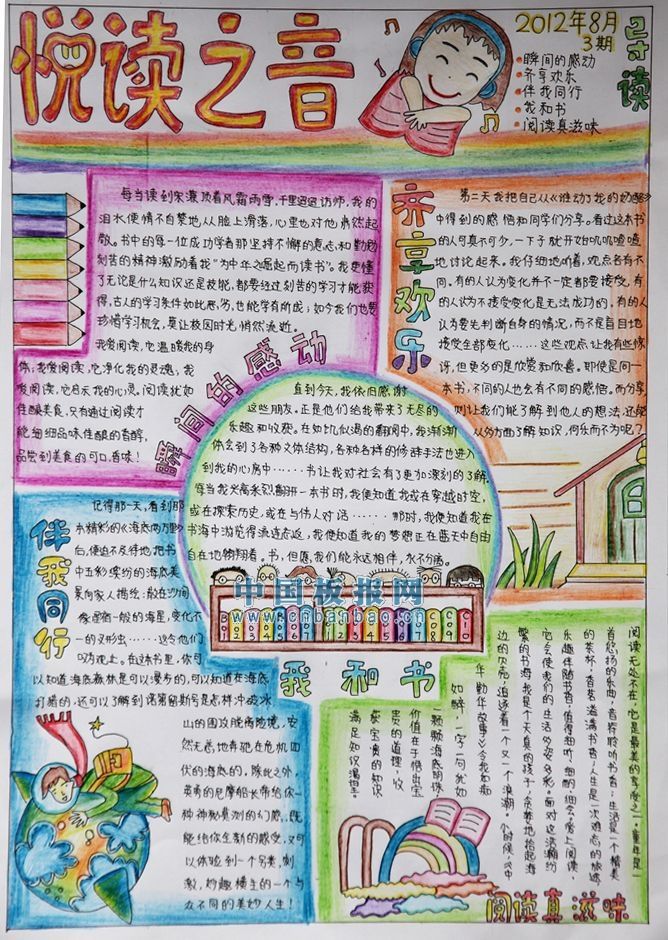 悦读之音
2012年8月
3期
寻读
瞬间的感动
齐享欢乐
伴我同行
我和书
阅读真滋味
每当读到宋濂顶着风霜雨雪,千里迢迢访师,我的
泪水便情不自禁地从脸上滑落,心里也对他肃然起
敬。书中的每一位成功学者那坚持不懈的意志和勤勤
刻苦的精神激励着我“为中华之崛起而读书”。我更懂
了无论是什么知识还是技能,都要经过刻苦的学习才能获
得,古人的学习条件如此恶劣,也能学有所成;如今我们也要
珍惜学习机会,莫让校园时光悄然流逝。
我爱阅读,它温暖我的身
体;我爱阅读,它净化我的灵魂;我
爱阅读,它启天我的心灵。阅读犹如
佳酿美食,只有通过阅读才
能细细品味佳酿的香醇,
品尝到美食的可口,香味!
瞬间的感动
齐享欢乐
第二天我把自己从《谁动了我的奶酪》
中得到的感悟和同学们分享。看过这本书
的人可真不少,一下子就开始叽叽喳喳
地讨论起来。我仔细地听着,观点各有不
同。有的人认为变化并不一定都要接受,有
的人认为不接受变化是无法成功的,有的人
认为要先判断自身的情况,而不是盲目地
接受全部变化……这些观点让我有些惊
讶,但更多的是欣赏和欣喜。即使是同一
本书,不同的人也会有不同的感悟。而分享
则让我们能了解到他人的想法,还能
从多方面了解知识,何乐而不为呢?
直到今天,我依旧感谢
这些朋友。正是他们给我带来了无尽的
乐趣和收获。在如饥似渴的翻阅中,我渐渐
体会到了各种文体结构,各种各样的修辞手法也进入
到我的心房中……书让我对社会有了更加深刻的了解。
每当我兴高采烈翻研一本书时,我便知道我或在穿越时空,
或在探索历史,或在与伟人对话……那时,我便知道我在
书海中游览得流连忘返,我便知道我的梦想正在蓝天中自由
自在地翱翔着。书,但愿我们能永远相伴,永不分离。
中国板报网
www.cnbanbao.cn
我和书
伴我同行
记得那一天,看到那
本精彩的《海底两万里》
后,便迫不及待地把书
中五彩缤纷的海底美
景向家人描绘:散在沙间
像星宿一般的海星,变化不
一的叉形虫……这令他们
叹为观止。在这本书里,你可
以知道海底森林是可以漫步的,可以知道在海底
打猎的,还可以了解到诺第留斯号是怎样冲破冰
山的围攻脱离险境,安
然无恙地奔驰在危机四
伏的海底的。除此之外,
英勇的尼摩船长带给你一
种神秘莫测的幻感,既
能给你全新的感受,又可
以体验到一个另类,刺
激,妙趣横生的一个与
众不同的美妙人生!
阅读无处不在,它是最美的享受之一。童年是一
首悠扬的乐曲,音符聆听书香;生活是一个精美
的茶杯,香茗溢满书香;人生是一次难忘的旅途,
乐趣伴随书香,值得细听、细酌、细会。爱上阅读,
它会使我们的生活多姿多彩。面对这浩瀚缤纷
繁的书海,我是个天真的孩子,亲赞地拾起海
边的贝壳,追逐着一个又一个浪潮。小时候,《中
华勤学故事》令我如痴
如醉,一字一句犹如
一颗颗海底明珠,
价值在于悟出宝
贵的道理,收
获宝满的知识
满足知识渴望。
阅读真滋味